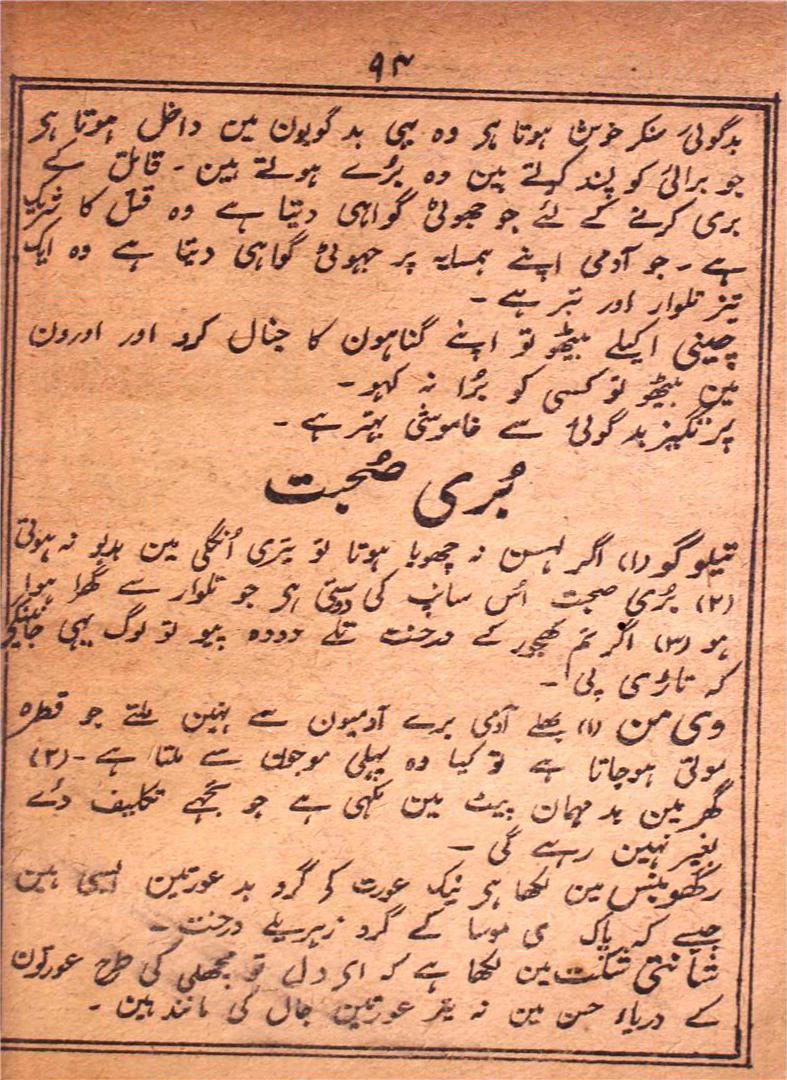 ۹۴
بدگوئی سنکر خوش ہوتا ہی وہ یہی بدگویون مین داخل ہوتا ہی
جو برائی کو پسند کرتے ہین وہ بُرے ہوتے ہین ۔ قاتل کے
بری کرنے کے لئے جو جھوٹی گواہی دیتا ہے وہ قتل کا شریک
ہے ۔ جو آدمی اپنے ہمسایہ پر جھوٹی گواہی دیتا ہے وہ ایک
تیز تلوار اور تبر ہے ۔
چینی اکیلے بیٹھو تو اپنے گناہون کا خیال کرو اور اورون
مین بیٹھو تو کسی کو بُرا نہ کہو ۔
پرتگیز بدگوئی سے خاموشی بہتر ہے ۔
بُری صُحبت
تیلوگو (۱) اگر لہسن نہ چھویا ہوتا تو تیری اُنگلی مین بدبو نہ ہوتی
(۲) بُری صحبت اُس سانپ کی دوستی ہی جو تلوار سے گھڑا ہوا
ہو (۳) اگر تم کھجور کے درخت تلے دودہ پیو تو لوگ یہی جانینگے
کہ تاڑی پی ۔
وی من (۱) بھلے آدمی برے آدمیون سے نہین ملتے جو قطرہ
موتی ہوجاتا ہے تو کیا وہ پہلی موجون سے ملتا ہے ۔ (۲)
گھر مین بد مہمان پیٹ مین مکھی ہے جو تجھے تکلیف دئے
بغیر نہین رہے گی ۔
رگھوبنس مین لکھا ہی نیک عورت کے گرد بد عورتین ایسی ہین
جیسے کہ پاک ی موسا کے گرد زہریلے درخت ۔
شانتی شتک مین لکھا ہے کہ ای دل تو مچھلی کی طرح عورتون
کے دریاء حسن مین نہ عورتین جال کی مانند ہین ۔